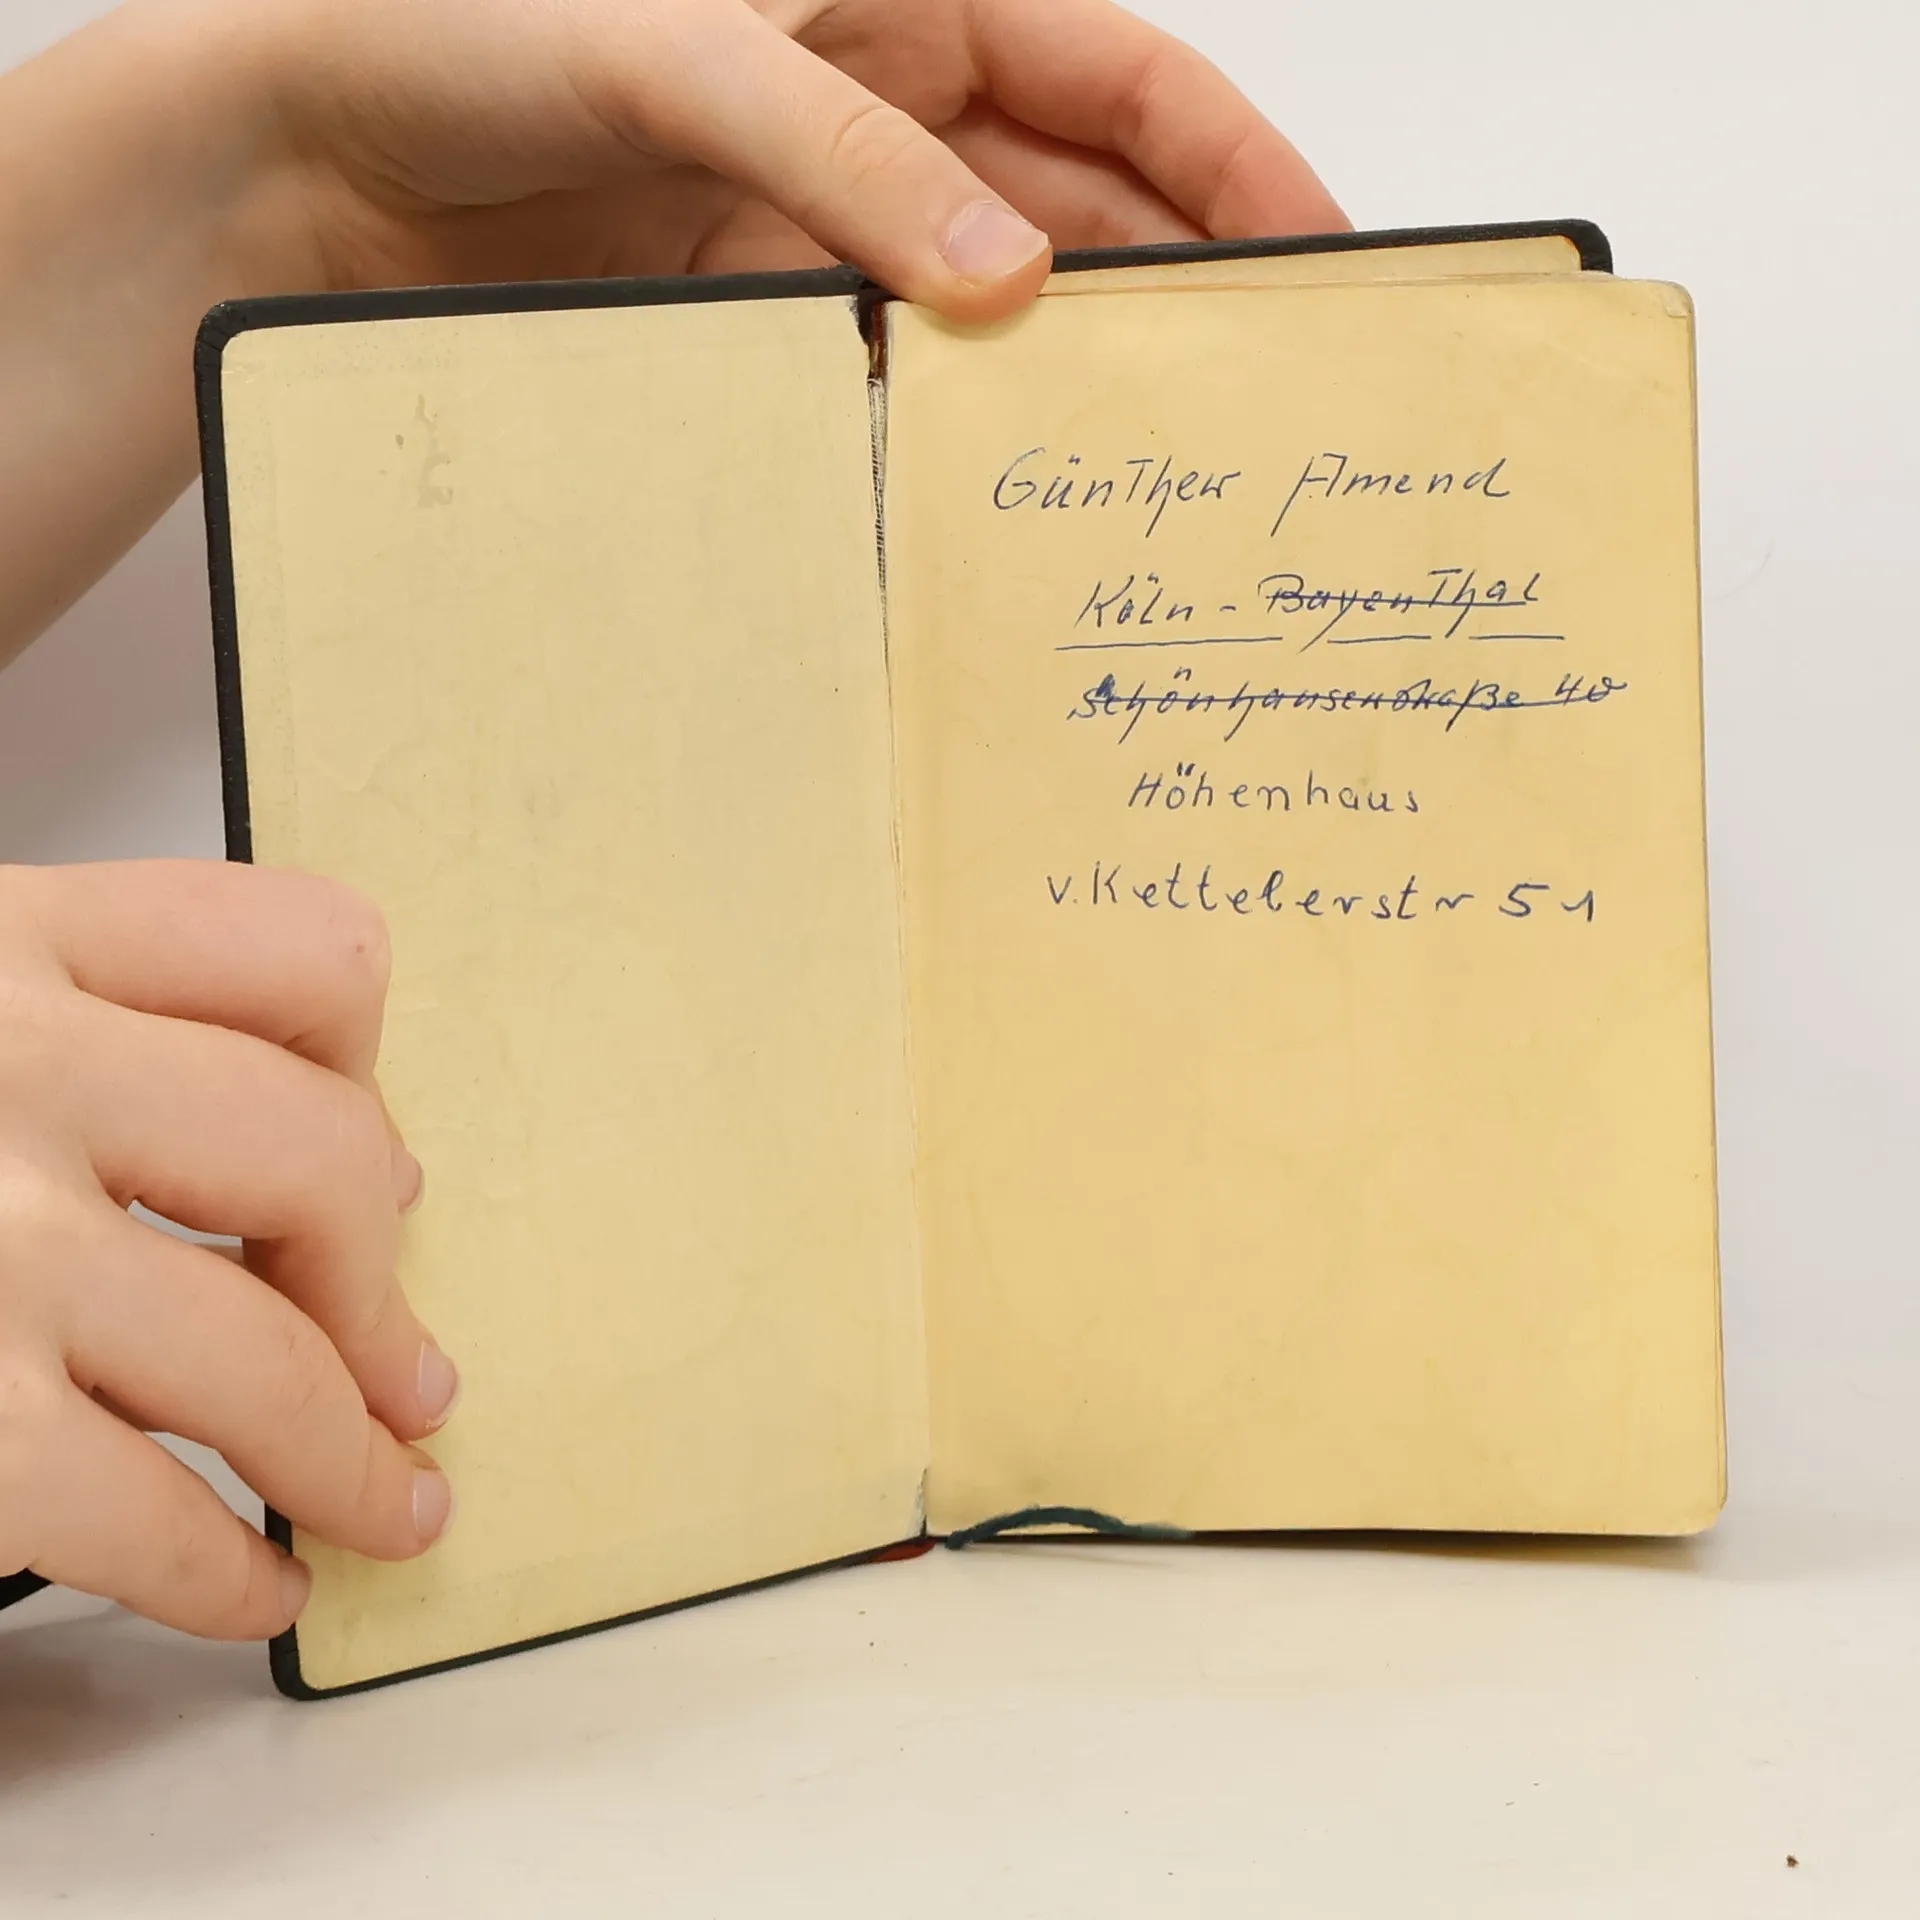 Günther Amend
Köln - Bayenthal
Schönhauserstraße 40
Höhenhaus
v. Kettelerstr 51